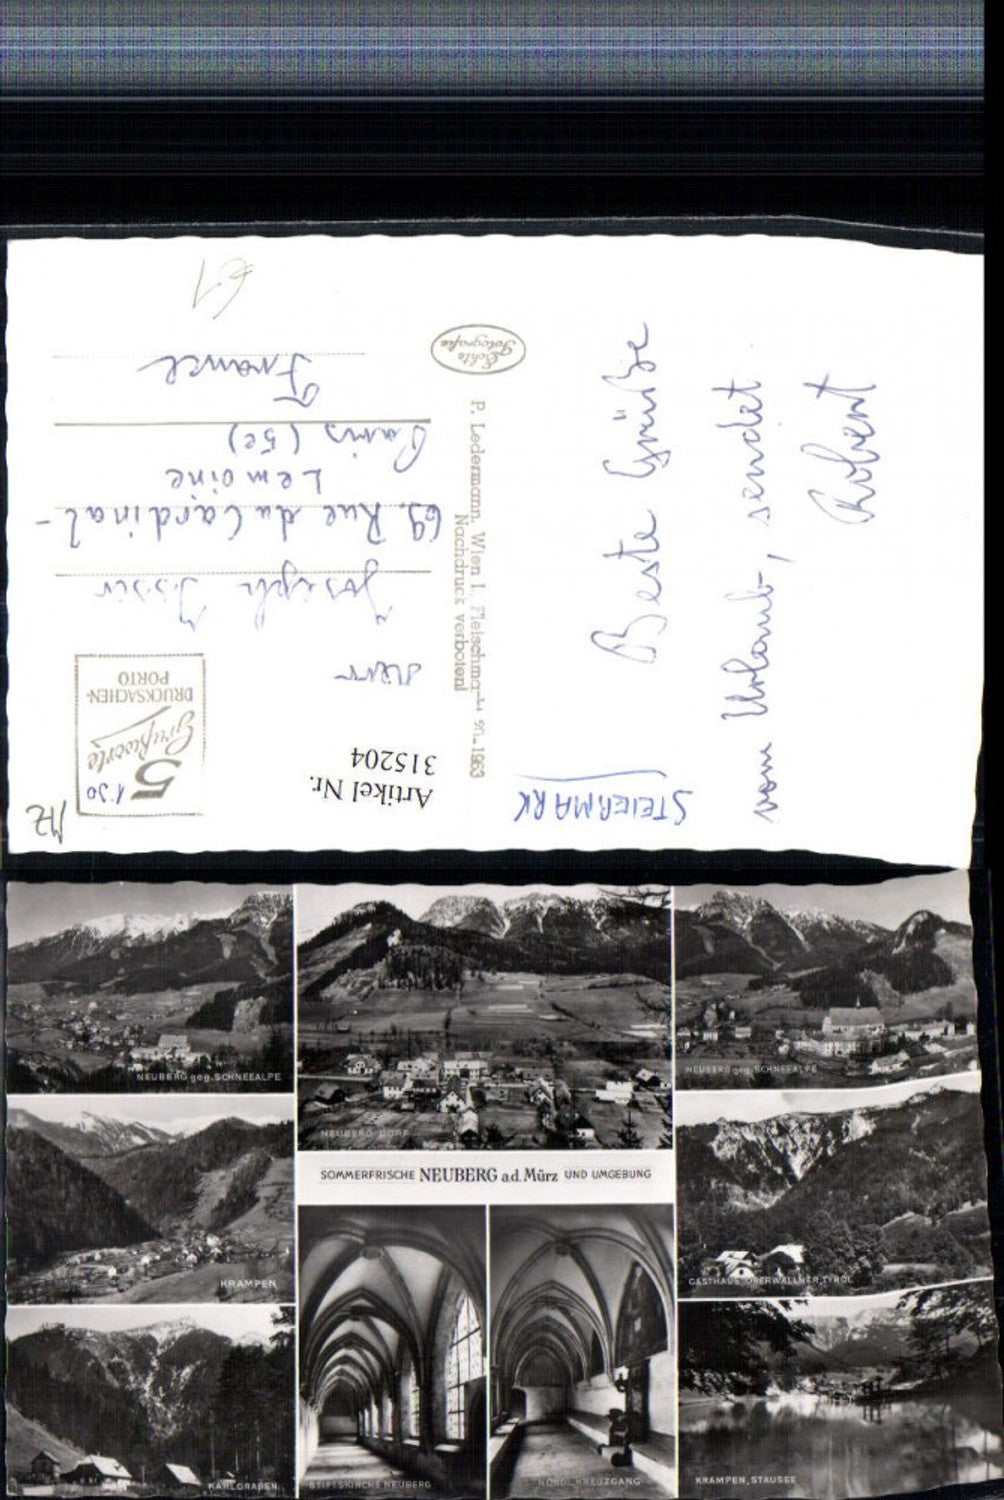 Beste Grüße
vom Urlaub, sendet
Robert
STEIERMARK
P. Ledermann, Wien I., Fleischmarkt 20 - 1963
Nachdruck verboten!
Echte
Fotografie
MZ
5
1'30
Grußworte
DRUCKSACHEN-
PORTO
Artikel Nr.
315204
Herr
Joseph
69. Rue du Cardinal-
Lemoine
Paris (5e)
France
€1
NEUBERG geg. SCHNEEALPE
NEUBERG-DORF
NEUBERG geg. SCHNEEALPE
SOMMERFRISCHE NEUBERG a.d. Mürz UND UMGEBUNG
KRAMPEN
GASTHAUS OBERWALLNER, TYROL
KARLGRABEN
STIFTSKIRCHE NEUBERG
NÖRDL. KREUZGANG
KRAMPEN, STAUSEE